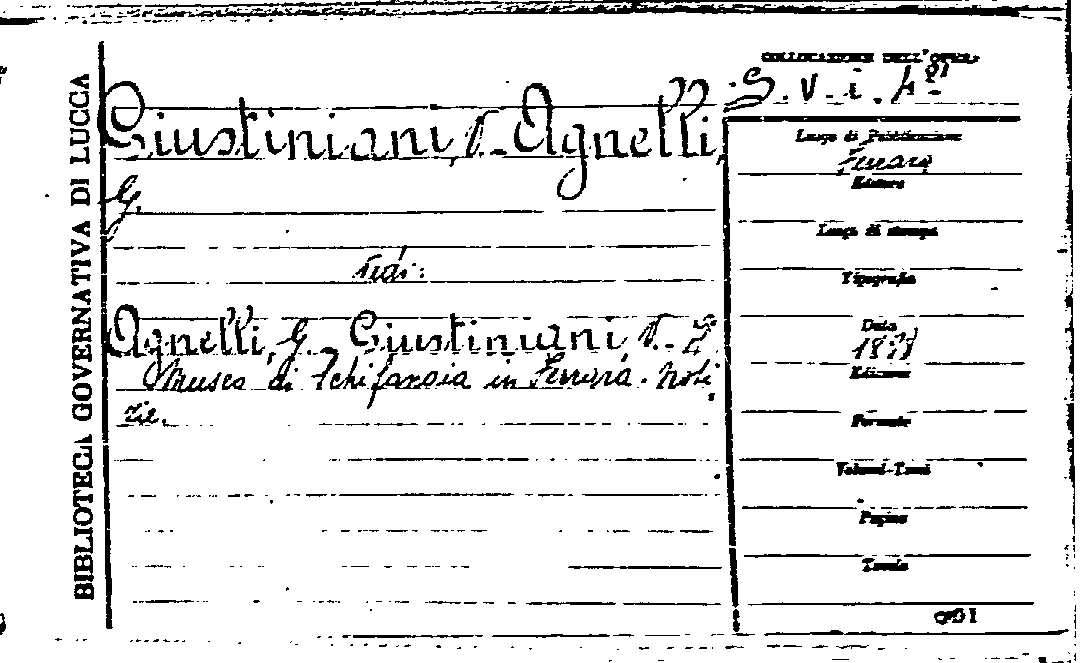 BIBLIOTECA GOVERNATIVA DI LUCCA
COLLOCAZIONE DELL'OPERA
S. V. i. 4º
Giustiniani, V. - Agnelli,
G.
vedi:
Agnelli, G. - Giustiniani V. - Il
Museo di Schifanoia in Ferrara. Noti
zie.
Luogo di Pubblicazione
Ferrara
Editore
Luogo di stampa
Tipografia
Data
Edizione
Formato
Volumi-Tomi
Pagine
Tavole